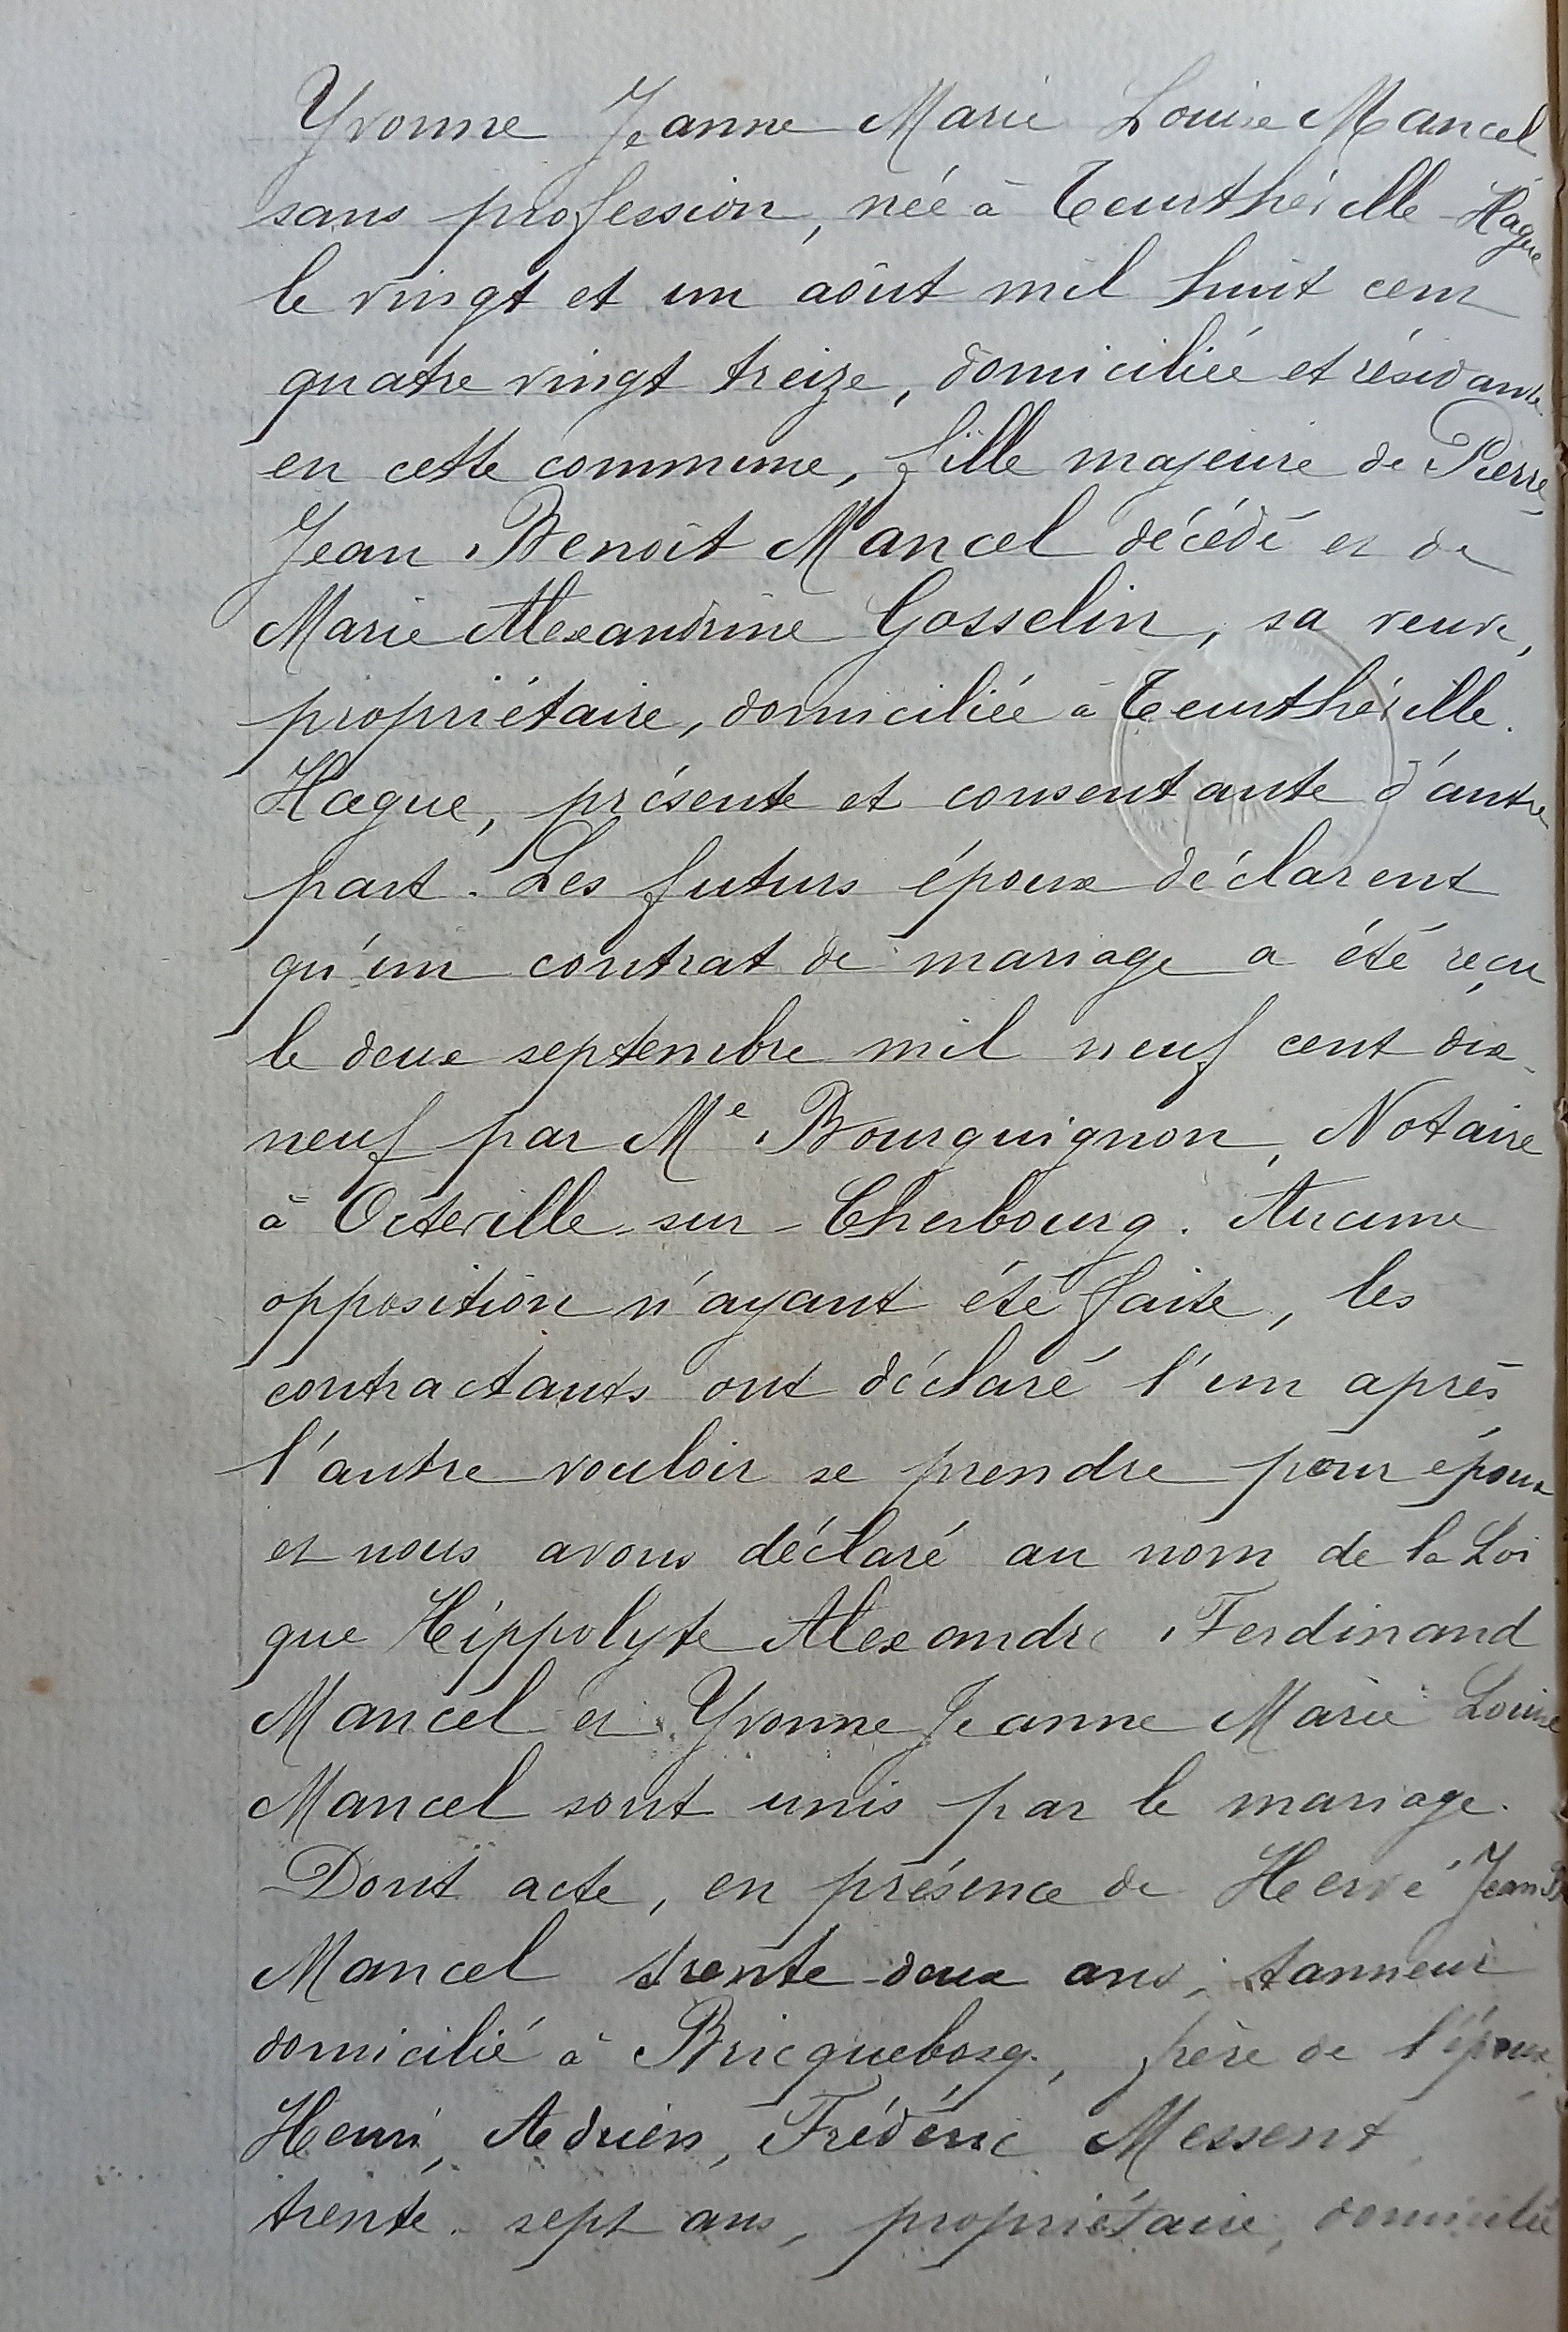 Yvonne Jeanne Marie Louise Mancel
sans profession, née à Teurthéville-Hague
le vingt et un août mil huit cent
quatre vingt treize, domiciliée et résidante
en cette commune, fille majeure de Pierre
Jean Benoît Mancel décédé et de
Marie Alexandrine Gosselin, sa veuve,
propriétaire, domiciliée à Teurthéville.
Hague, présente et consentante d'autre
part. Les futurs époux déclarent
qu'un contrat de mariage a été reçu
le deux septembre mil neuf cent dix-
neuf par Me Bourguignon, Notaire
à Octeville-sur-Cherbourg. Aucune
opposition n'ayant été faite, les
contractants ont déclaré l'un après
l'autre vouloir se prendre pour époux
et nous avons déclaré au nom de la Loi
que Hippolyte Alexandre Ferdinand
Mancel et Yvonne Jeanne Marie Louise
Mancel sont unis par le mariage.
Dont acte, en présence de Hervé Jean
Mancel trente-deux ans, tanneur
domicilié à Bricquebosq, frère de
Henri, Adrien, Frédéric Messent
trente-sept ans, propriétaire, domicilié